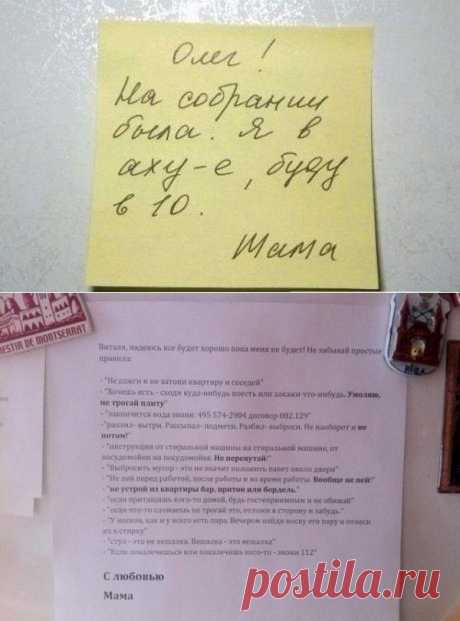 Олег!
На собрании
была. Я в
аху-е, буду
в 10.
Мама
ESTIR DE MONTSERRAT
Виталя, надеюсь все будет хорошо пока меня не будет! Не забывай простые
правила:
- "Не сожги и не затопи квартиру и соседей"
- "Хочешь есть - сходи куда-нибудь поесть или закажи что-нибудь. Умоляю,
не трогай плиту"
- "закончится вода звони: 495 574-2904 договор 002.129"
- "разлил- вытри. Рассыпал- подмети. Разбил- выброси. Не наоборот и не
потом!"
- "инструкция от стиральной машины на стиральной машине, от
посудомойки на посудомойке. Не перепутай!"
- "Выбросить мусор - это не значит положить пакет около двери"
- "Не пей перед работой, после работы и во время работы. Вообще не пей!"
- "не устрой из квартиры бар, притон или бордель."
- "если приглашаешь кого-то домой, будь гостеприимным и не обижай"
- "если что-то сломаешь не трогай это, отложи в сторону и забудь."
- "У носков, как и у всего есть пара. Вечером найди носку его пару и отнеси
их в стирку"
- "стул - это не вешалка. Вешалка - это вешалка"
- "Если покалечишься или покалечишь кого-то - звони 112"
С любовью
Мама
RIGA
postila.ru